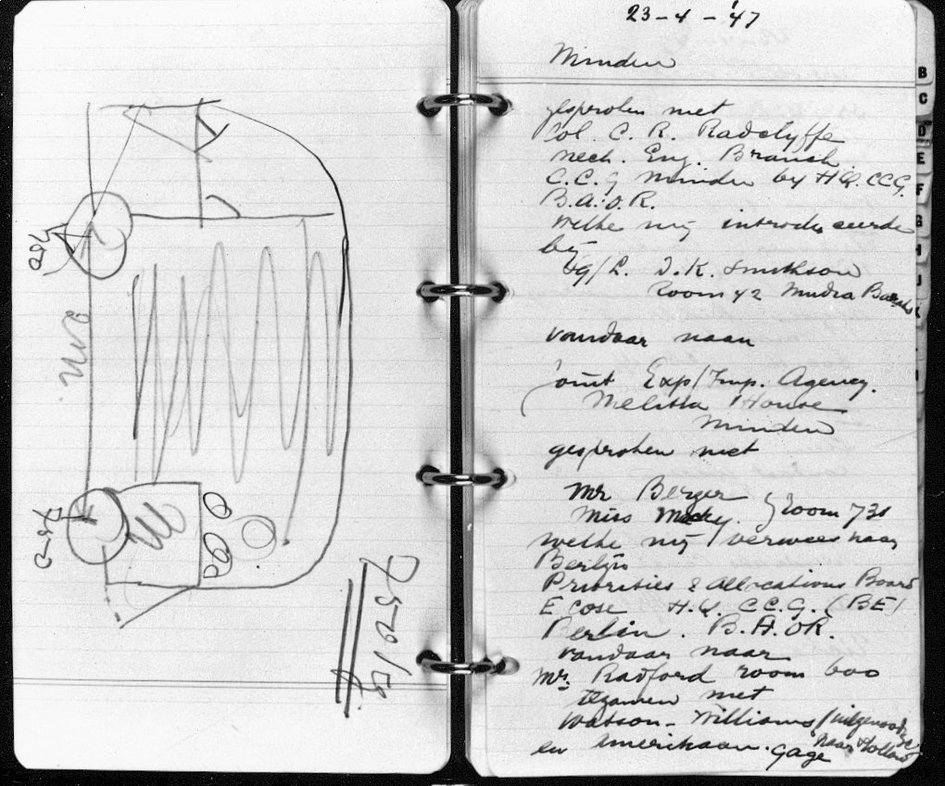 2.40
7-2
750 kg
23-4-'47
Minden
gesproken met
Col. C. R. Radclyffe
Mech. Eng. Branch.
C.C.G Minden by H.Q. CCG.
B.A.O.R.
welke mij introduceerde
bij
D. K. Smithson
Room 42 Mudra Barracks
vandaar naar
Joint Exp/Imp. Agency.
Melitta House
Minden
gesproken met
Mr Berger
Miss Macky. } Room 731
welke mij verwees naar
Berlijn
Priorities & Allocations Board
Ecose H.Q. C.C.G. (BE)
Berlin. B.A.OR.
vandaar naar
Mr. Radford room 600
tezamen met
Watson-Williams
naar Holland
en Amerikaan. Gage
B
C
D
E
F
G
H
J
K